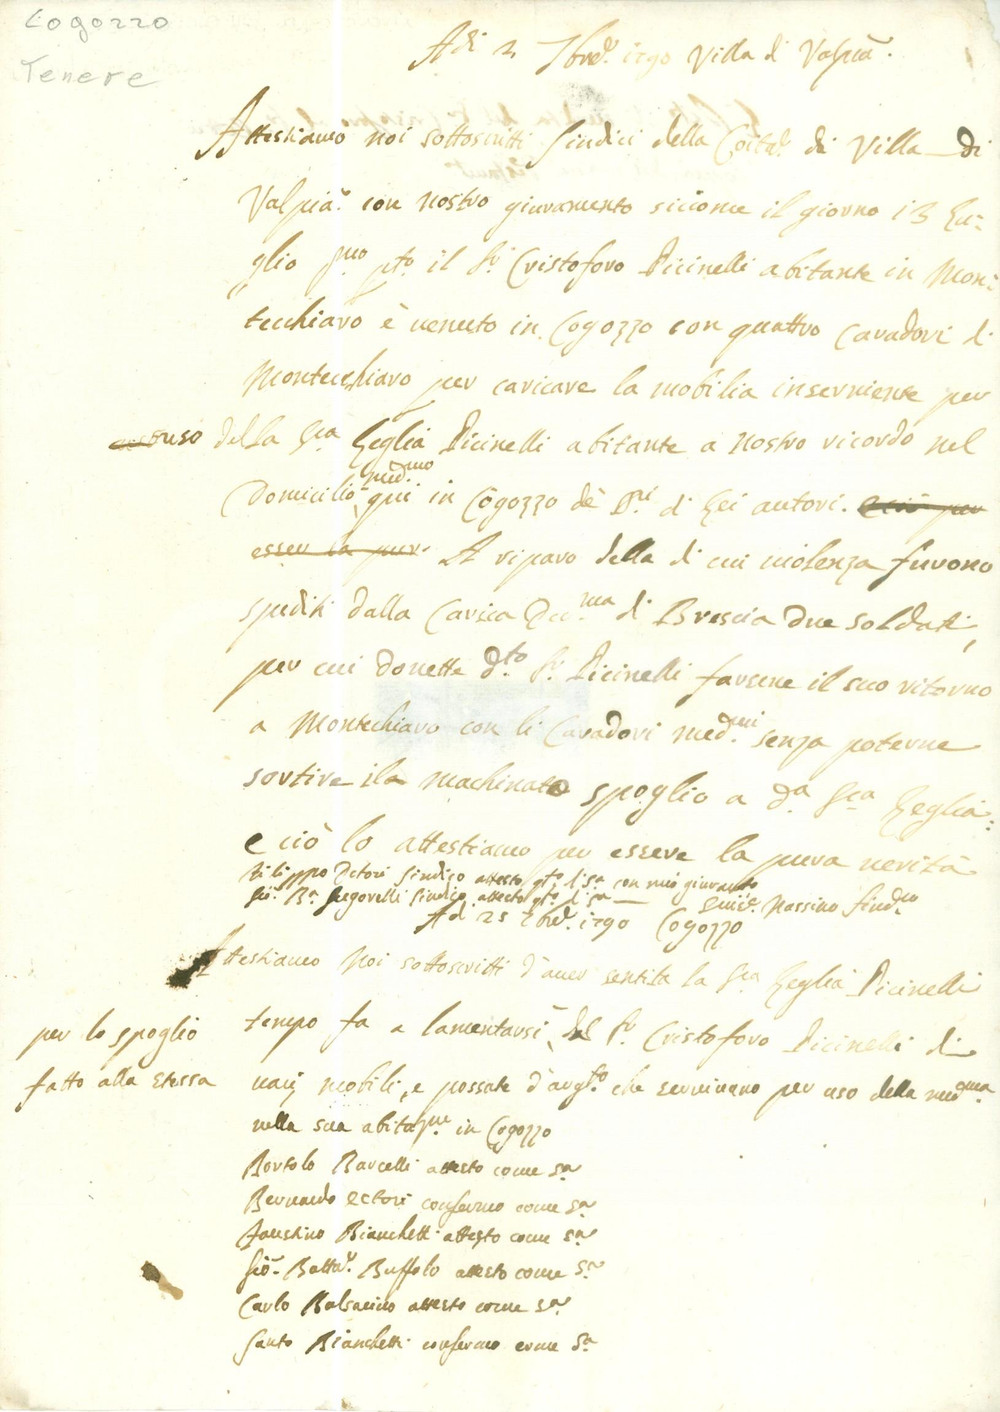 Cogozzo
Tenere
Adi 2 7bre. 1790 Villa di Valpià.
Attestiamo noi sottoscritti Sindici della Coità. di Villa di
Valpia. con nostro giuramento siccome il giorno 13 Lu=
glio pmo pto il Sr. Cristoforo Picinelli abitante in Mon=
tecchiaro è venuto in Cogozzo con quattro Cavadori di
Montecchiaro per caricare la mobilia inserviente per
uso della Sra Leglia Picinelli abitante a nostro ricordo nel
Domicilio medmo qui in Cogozzo dè Pri. di Lei autori. e ciò per
esser la pur. A riparo della di cui violenza furono
spediti dalla Carica Dma di Brescia due soldati,
per cui dovette dto. Sr. Picinelli farsene il suo ritorno
a Montechiaro con li Cavadori med.mi senza poterne
sortire il machinato spoglio a da Sra Leglia:
e ciò lo attestiamo per essere la pura verità
Filippo Ectori Sindico attesto qto. di sa con mio giuramto
Gio. Ba. Gregorelli Sindico attesto qto. di sa Massino Sindco
Ad 25 7bre. 1790 Cogozzo
Attestiamo Noi sottoscritti d'aver sentita la Sra Leglia Picinelli
tempo fa a lamentarsi, del Sr. Cristoforo Picinelli di
per lo spoglio
fatto alla stessa
varj mobili, e possate d'argto. che servivano per uso della medma
nella sua abitazne. in Cogozzo
Bortolo Barcelli attesto come sa
Bernardo Ectori confermo come sa
Faustino Bianchetti attesto come sa
Gio. Batta. Buffolo attesto come sa
Carlo Balsarino attesto come sa
Santo Bianchetti confermo come sa